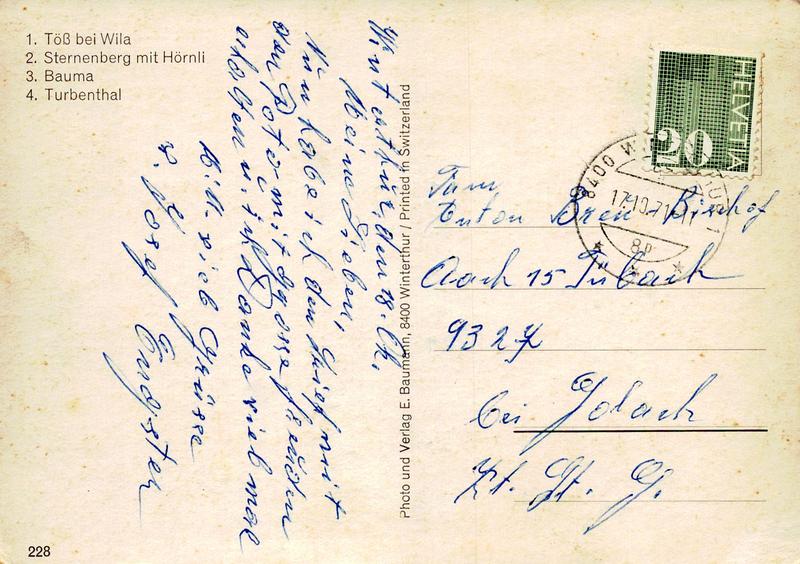 1. Töß bei Wila
2. Sternenberg mit Hörnli
3. Bauma
4. Turbenthal
Winterthur, den 18. Ok.
Meine Lieben,
Nun habe ich den Brief mit
den Foto mit grosse freuden
erhalten u. ich Danke viel mal
Mit viel Grüsse
v. Josef
Photo und Verlag E. Baumann, 8400 Winterthur / Printed in Switzerland
HELVETIA
20
8400 WINTERTHUR 1
17.10.71-11
8P
Fam.
Anton Breu-Bischof
Aach 15 Tübach
9327
bei Goldach
Kt. St. G.
228